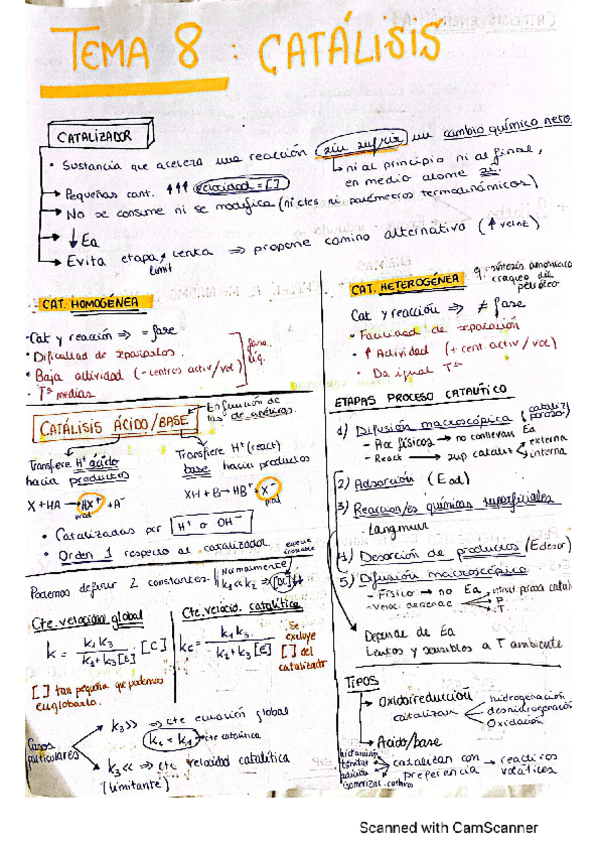 TEMA 8 : CATÁLISIS
CATALIZADOR
• Sustancia que acelera una reacción sin sufrir un cambio químico neto.
↳ ni al principio ni al final,
en medio
→ Pequeñas cant. ↑↑↑ velocidad = [ ]
→ No se consume ni se modifica (ni ctes ni parámetros termodinámicos)
→ ↓Ea
→ Evita etapa lenta ⇒ propone camino alternativo (↑veloz)
limit
CAT. HOMOGÉNEA
• Cat y reacción ⇒ = fase
• Dificultad de separarlos.
• Baja actividad (- centros activ/vol)
• Tª medias
liq.
CATÁLISIS ÁCIDO/BASE
En función de
Transfiere H⁺ ácido
hacia productos
X + HA → AX⁺ + A⁻
Transfiere H⁺ (react)
base hacia productos
XH + B → HB⁺ + X⁻
prod
• Catalizadas por H⁺ o OH⁻
• Orden 1 respecto al catalizador
Podemos definir 2 constantes.
Normalmente
k₁ << k₂ ⇒
Cte. velocidad global
k = k₁k₃ / k₂+k₃[E] · [C]
[ ] tan pequeña que podemos
englobarla.
Cte. velocid. catalítica
kc = k₁k₃ / k₂+k₃[E]
Se
excluye
[ ] del
catalizador
Casos
particulares
k₃>> ⇒ cte ecuación global
kc = k₁ → cte catalítica
k₃<< ⇒ cte velocidad catalítica
(limitante)
CAT. HETEROGÉNEA
síntesis amoniaco
craqueo del
petróleo
Cat y reacción ⇒ ≠ fase
• Facilidad de separación
• ↑ Actividad (+ cent. activ/vol)
• Da igual Tª
ETAPAS PROCESO CATALÍTICO
1) Difusión macroscópica (cataliz porosos)
- Ace físicos → no conllevan Ea
- React → sup cataliz
externa
interna
2) Adsorción (Ead)
3) Reaccion/es químicas superficiales
- Langmuir
4) Desorción de productos (Edesor)
5) Difusión macroscópica
- Físico → no Ea
P
T
Depende de Ea
Lentos y sensibles a T ambiente
TIPOS
→ Oxidorreducción
catalizan
hidrogenación
deshidrogenación
Oxidación
→ Acido/base
hidratación
catalizan con
preferencia → reactivos
volátiles
Scanned with CamScanner